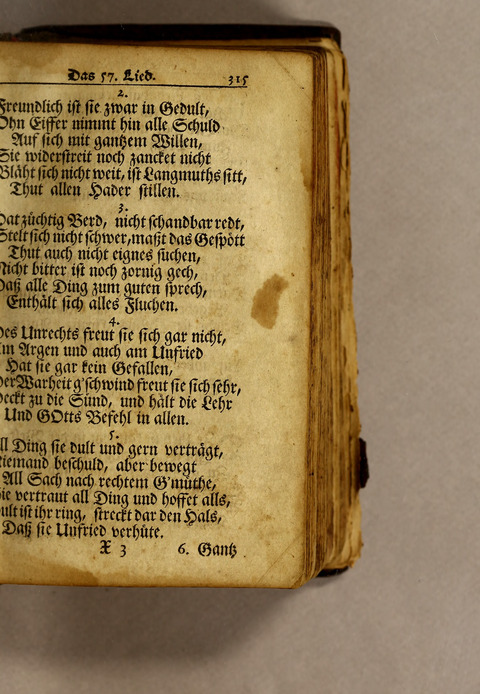 Das 57. Lied. 315
2.
Freundlich ist sie zwar in Gedult,
Ohn Eiffer nimmt hin alle Schuld
Auf sich mit gantzem Willen,
Sie widerstreit noch zancket nicht
Bläht sich nicht weit, ist Langmuths sitt,
Thut allen Hader stillen.
3.
Hat züchtig Berd, nicht schandbar redt,
Stelt sich nicht schwer, maßt das Gespött
Thut auch nicht eignes suchen,
Nicht bitter ist noch zornig gech,
Daß alle Ding zum guten sprech,
Enthält sich alles Fluchen.
4.
Des Unrechts freut sie sich gar nicht,
Am Argen und auch am Unfried
Hat sie gar kein Gefallen,
Der Warheit g'schwind freut sie sich sehr,
Deckt zu die Sünd, und hält die Lehr
Und GOtts Befehl in allen.
5.
All Ding sie dult und gern verträgt,
Niemand beschuld, aber bewegt
All Sach nach rechtem G'müthe,
Sie vertraut all Ding und hoffet alls,
Dult ist ihr ring, streckt dar den Hals,
Daß sie Unfried verhüte.
X 3 6. Gantz